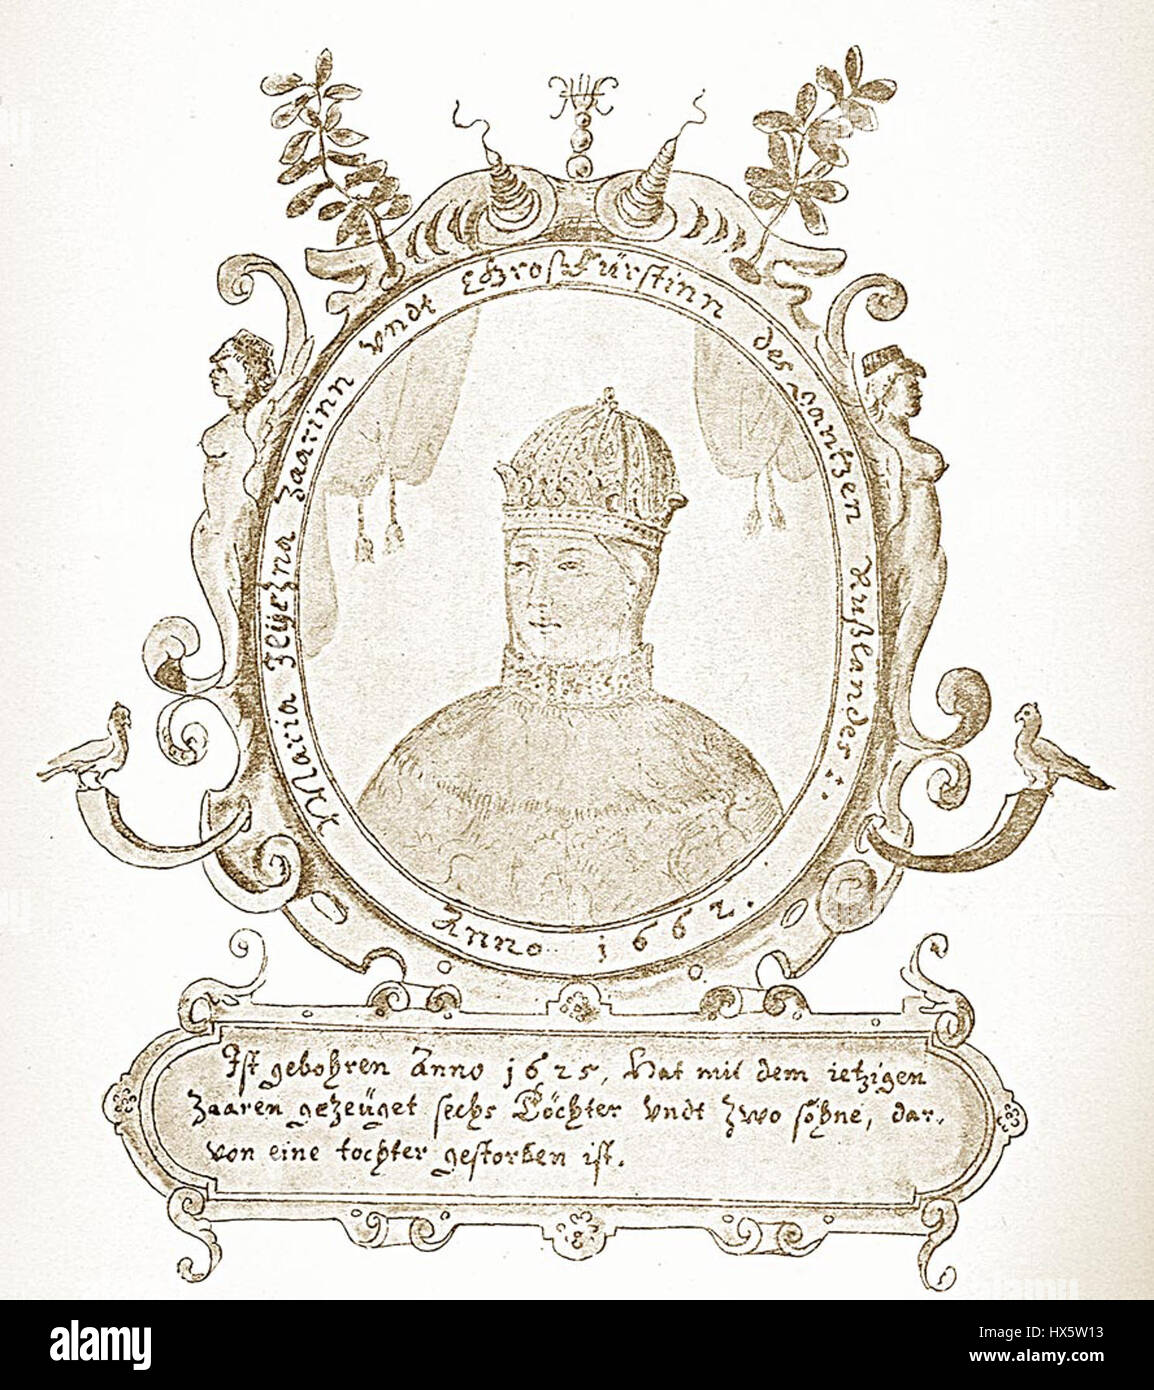 Maria Iliyczna Zaarinn vndt GrosFürstinn des Gantzen Rußlandes
Anno 1662.
Ist gebohren Anno 1625, Hat mit dem ietzigen
Zaaren gezeüget sechs Töchter vndt zwo söhne, dar.
von eine tochter gestorben ist.
alamy
Image ID: HX5W13
www.alamy.com